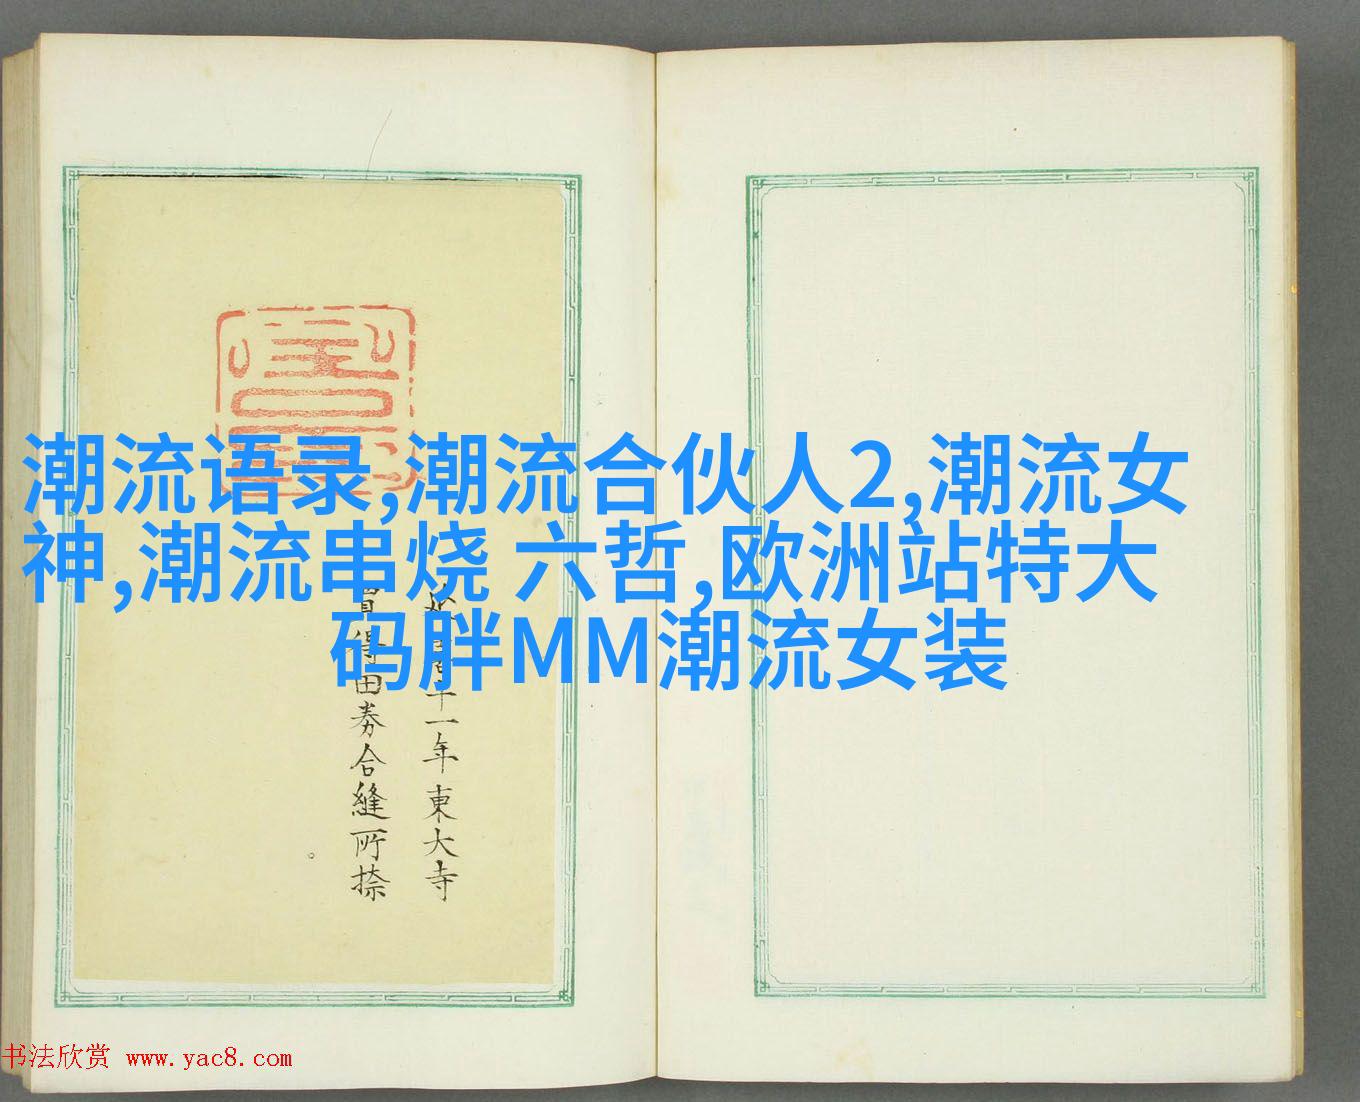 潮流语录,潮流合伙人2,潮流女
神,潮流串烧 六哲,欧洲站特大
码胖MM潮流女装
十一年東大寺
得田券合縫所捺
书法欣赏 www.yac8.com